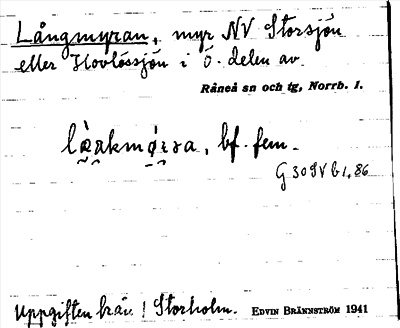 Långmyran, myr NV Storsjön
eller Hovlössjön i ö. delen av
Råneå sn och tg, Norrb. l.
bf. fem.
G 30 SV b 1, 86
Uppgiften från ! Storholm. EDVIN BRÄNNSTRÖM 1941